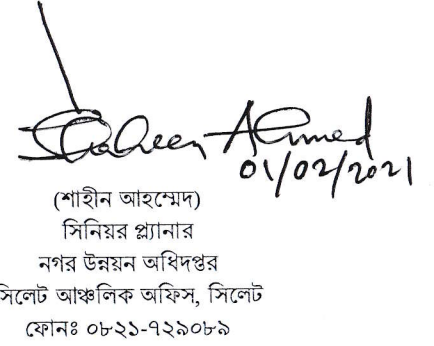 Shaheen Ahmed
01/02/2021
(শাহীন আহম্মেদ)
সিনিয়র প্ল্যানার
নগর উন্নয়ন অধিদপ্তর
সিলেট আঞ্চলিক অফিস, সিলেট
ফোনঃ ০৮২১-৭২৯০৮৯